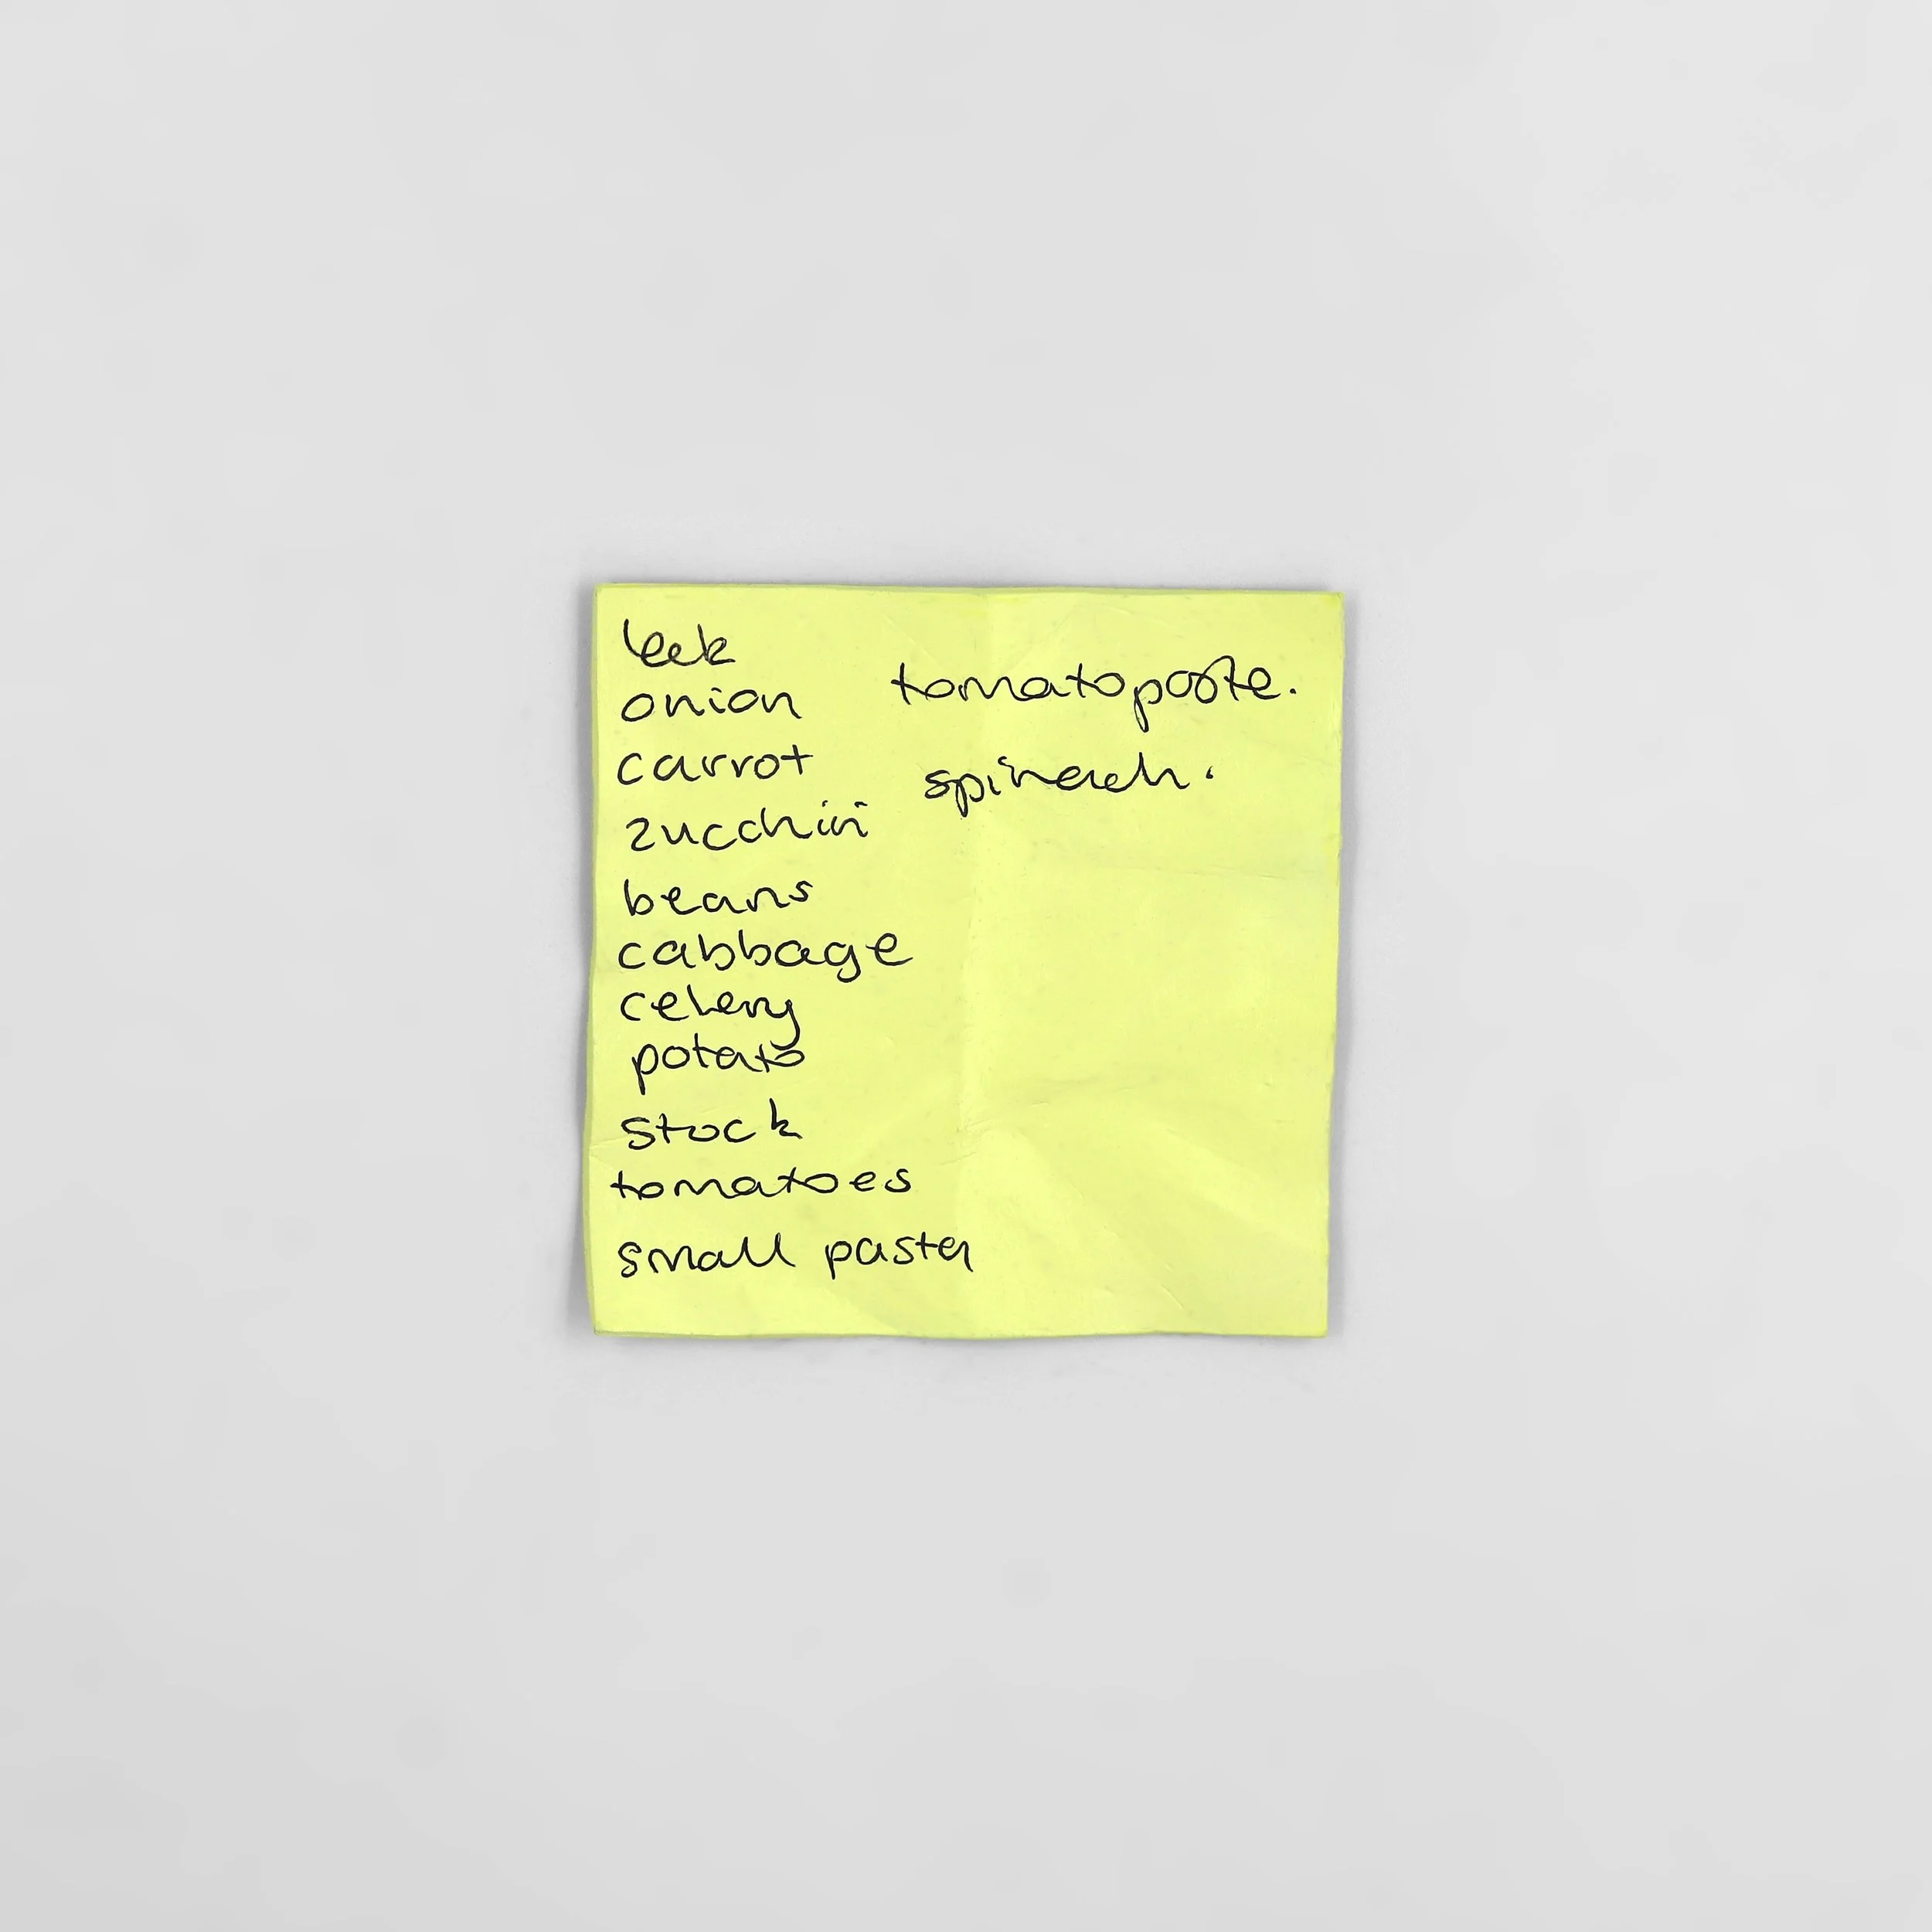 leek
onion
carrot
zucchini
beans
cabbage
celery
potato
stock
tomatoes
small pasta
tomato paste.
spinach.